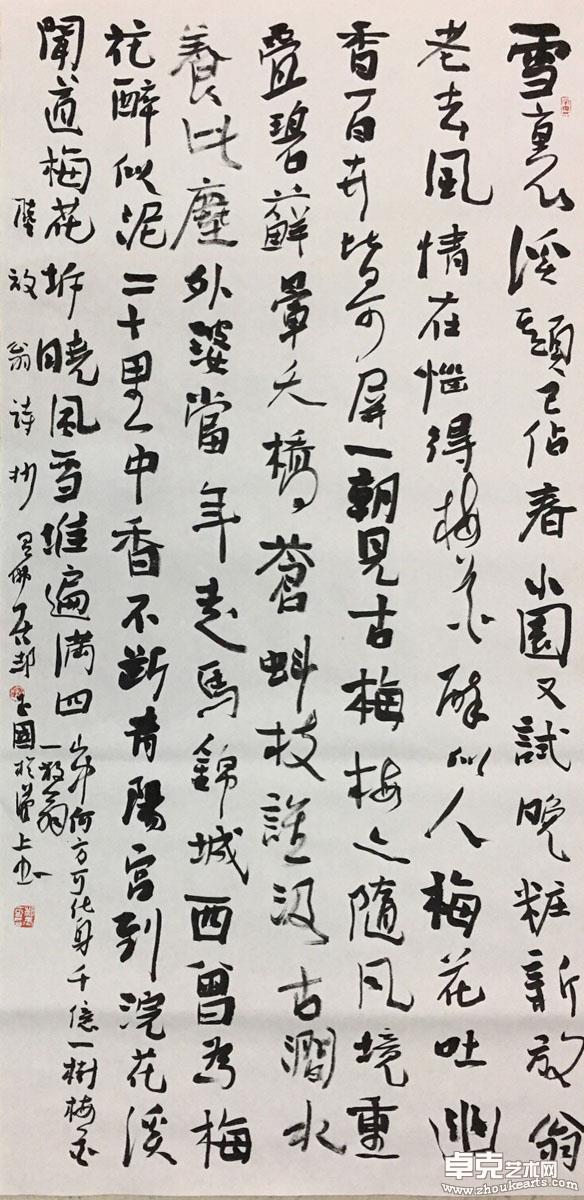 雪裏溪頭已佔春小園又試晚粧新放翁
老去風情在惱得梅花醉似人梅花吐幽
香百卉皆可屏一朝見古梅梅亦隨凡境重
疊碧蘚暈夭橋蒼蚪枝誰汲古澗水
養此塵外姿當年走馬錦城西曾為梅
花醉似泥二十里中香不斷青陽宮到浣花溪
聞道梅花坼曉風雪堆遍滿四山中何方可化身千億一樹梅花
一放翁
陸放翁詩抄 居 國於漢上書
卓克艺术网
www.zhoukearts.com